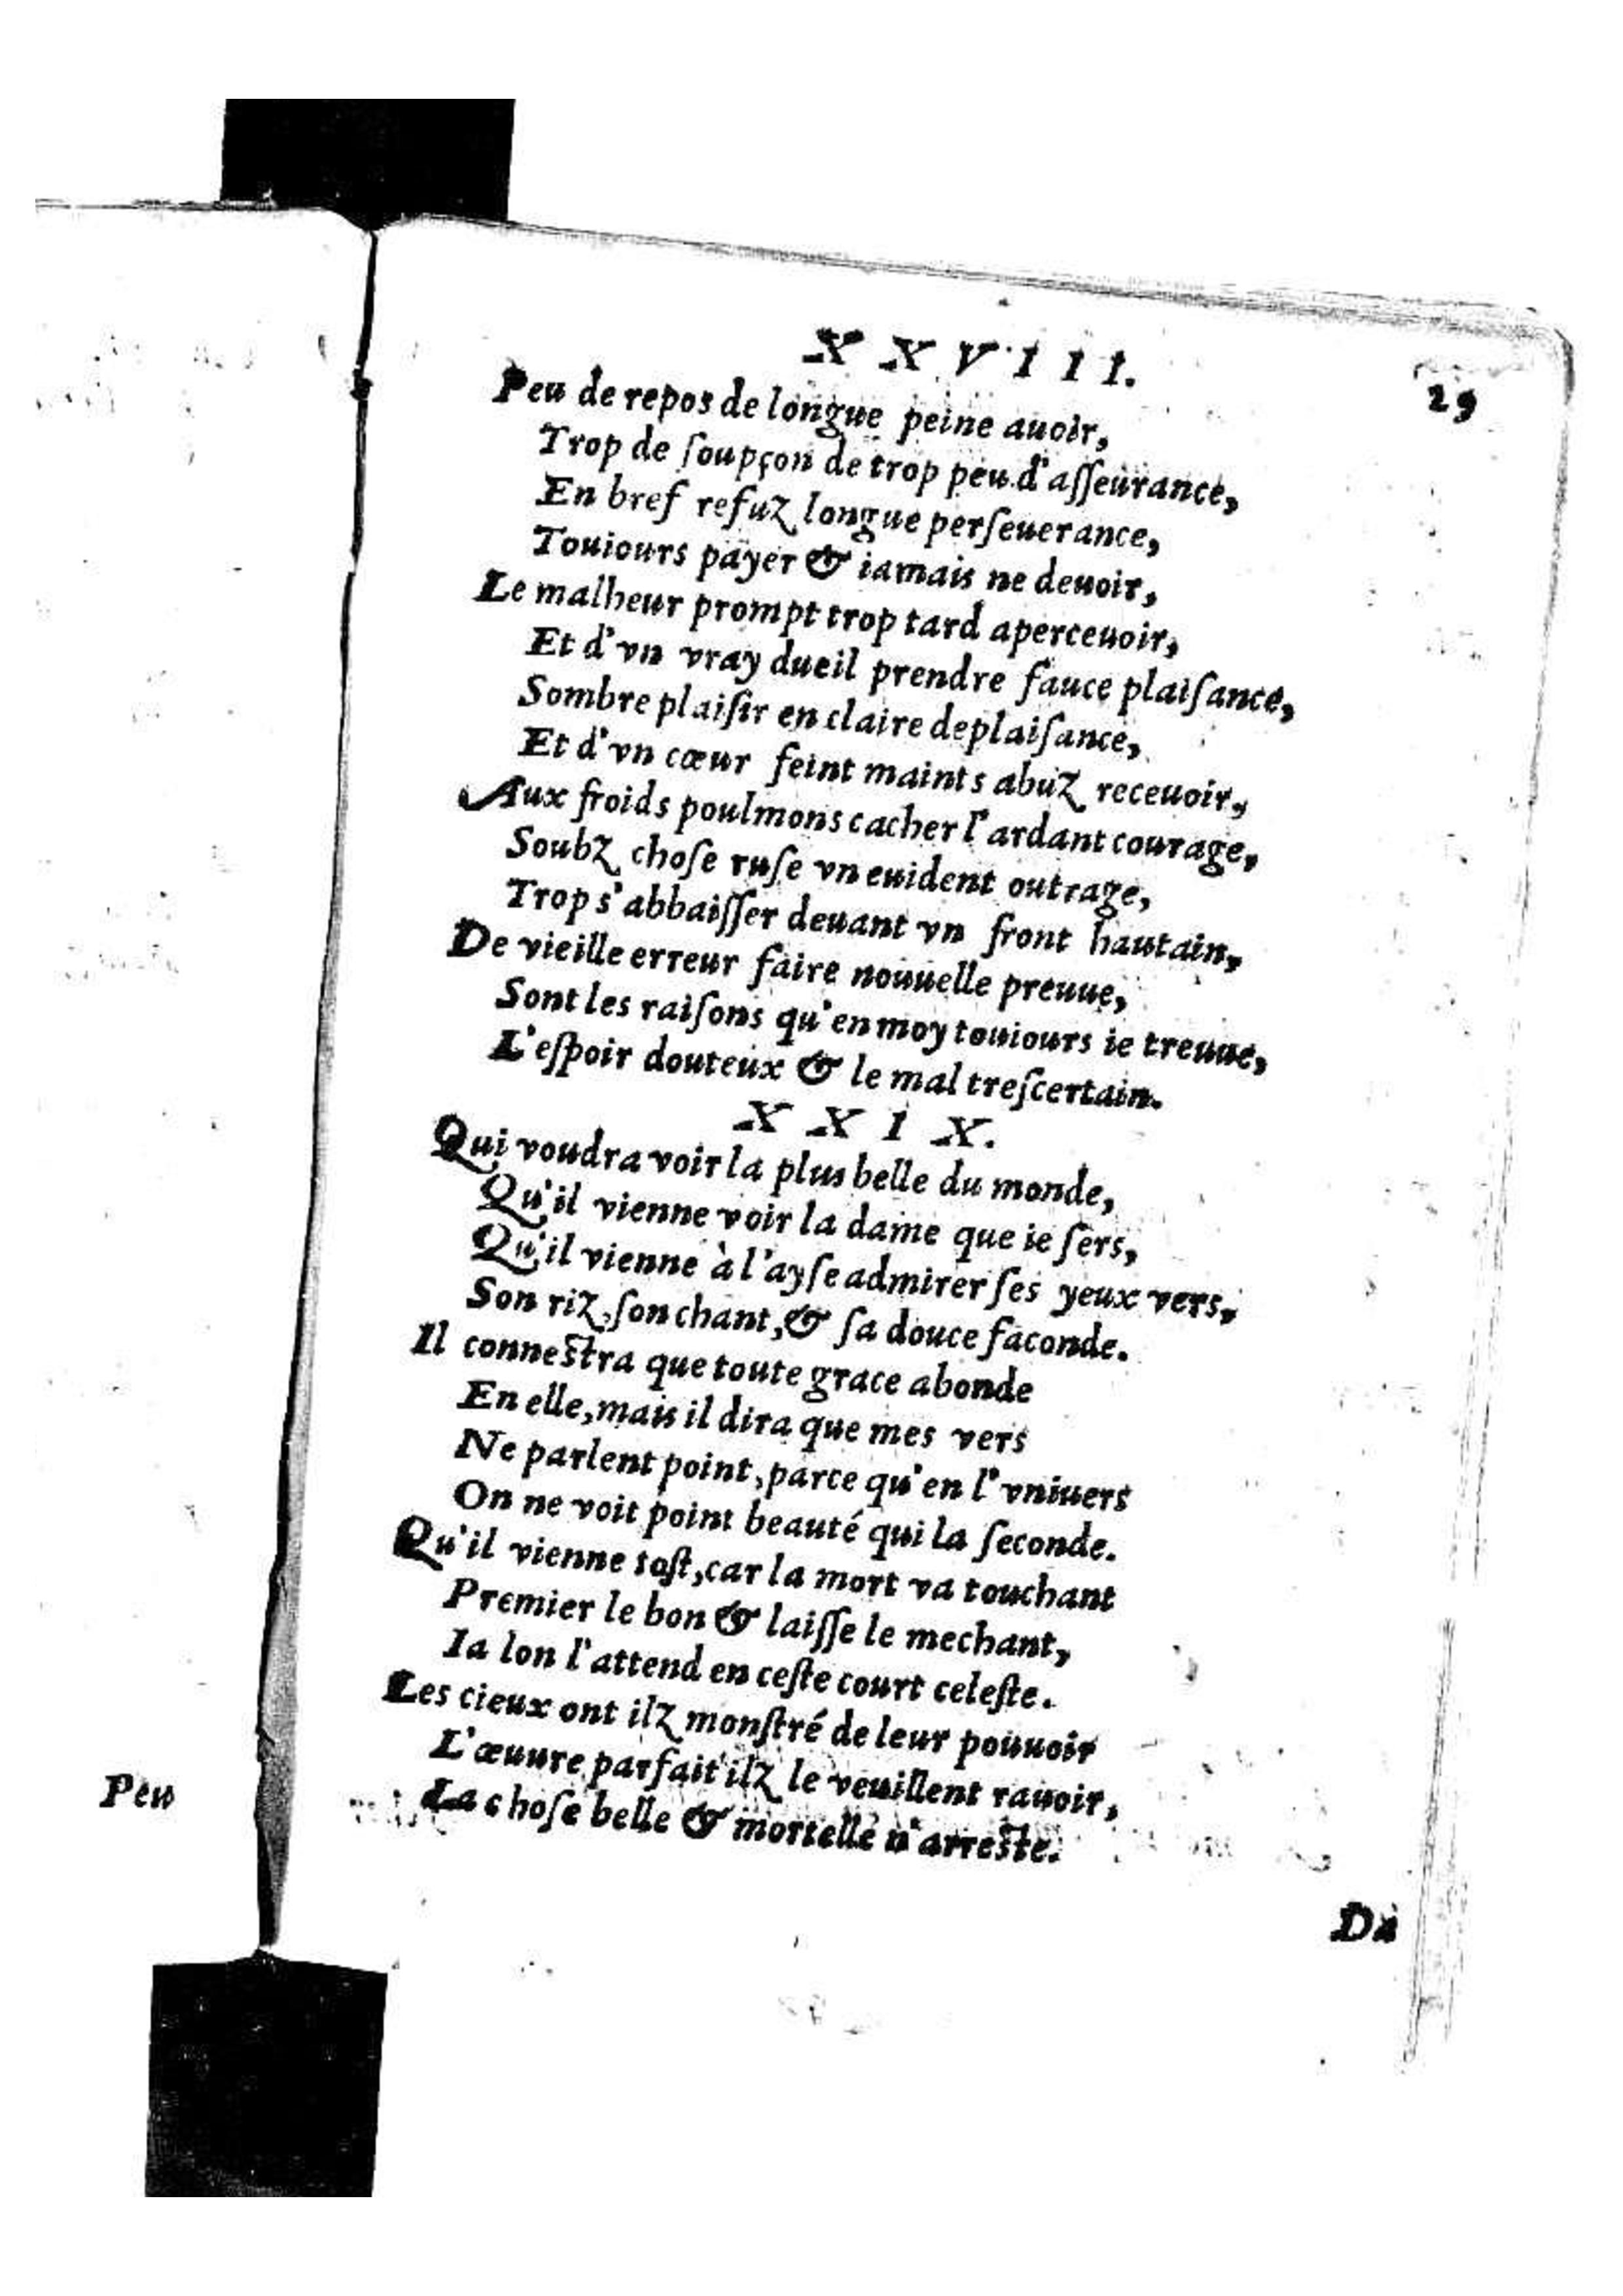 XXVIII.
29
Peu de repos de longue peine auoir,
Trop de ſoupçon de trop peu d'aſſeurance,
En bref refuz longue perſeuerance,
Touiours payer & iamais ne deuoir,
Le malheur prompt trop tard aperceuoir,
Et d'vn vray dueil prendre fauce plaiſance,
Sombre plaiſir en claire deplaiſance,
Et d'vn cœur feint maints abuz receuoir,
Aux froids poulmons cacher l'ardant courage,
Soubz choſe ruſe vn euident outrage,
Trop s'abbaiſſer deuant vn front hautain,
De vieille erreur faire nouuelle preuue,
Sont les raiſons qu'en moy touiours ie treuue,
L'eſpoir douteux & le mal treſcertain.
XXIX.
Qui voudra voir la plus belle du monde,
Qu'il vienne voir la dame que ie ſers,
Qu'il vienne à l'ayſe admirer ſes yeux vers,
Son riz, ſon chant, & ſa douce faconde.
Il conneſtra que toute grace abonde
En elle, mais il dira que mes vers
Ne parlent point, parce qu'en l'vniuers
On ne voit point beauté qui la ſeconde.
Qu'il vienne toſt, car la mort va touchant
Premier le bon & laiſſe le mechant,
Ia lon l'attend en ceſte court celeſte.
Les cieux ont ilz monſtré de leur pouuoir
L'œuure parfait ilz le veuillent rauoir,
La choſe belle & mortelle n'arreſte.
Peu
Da